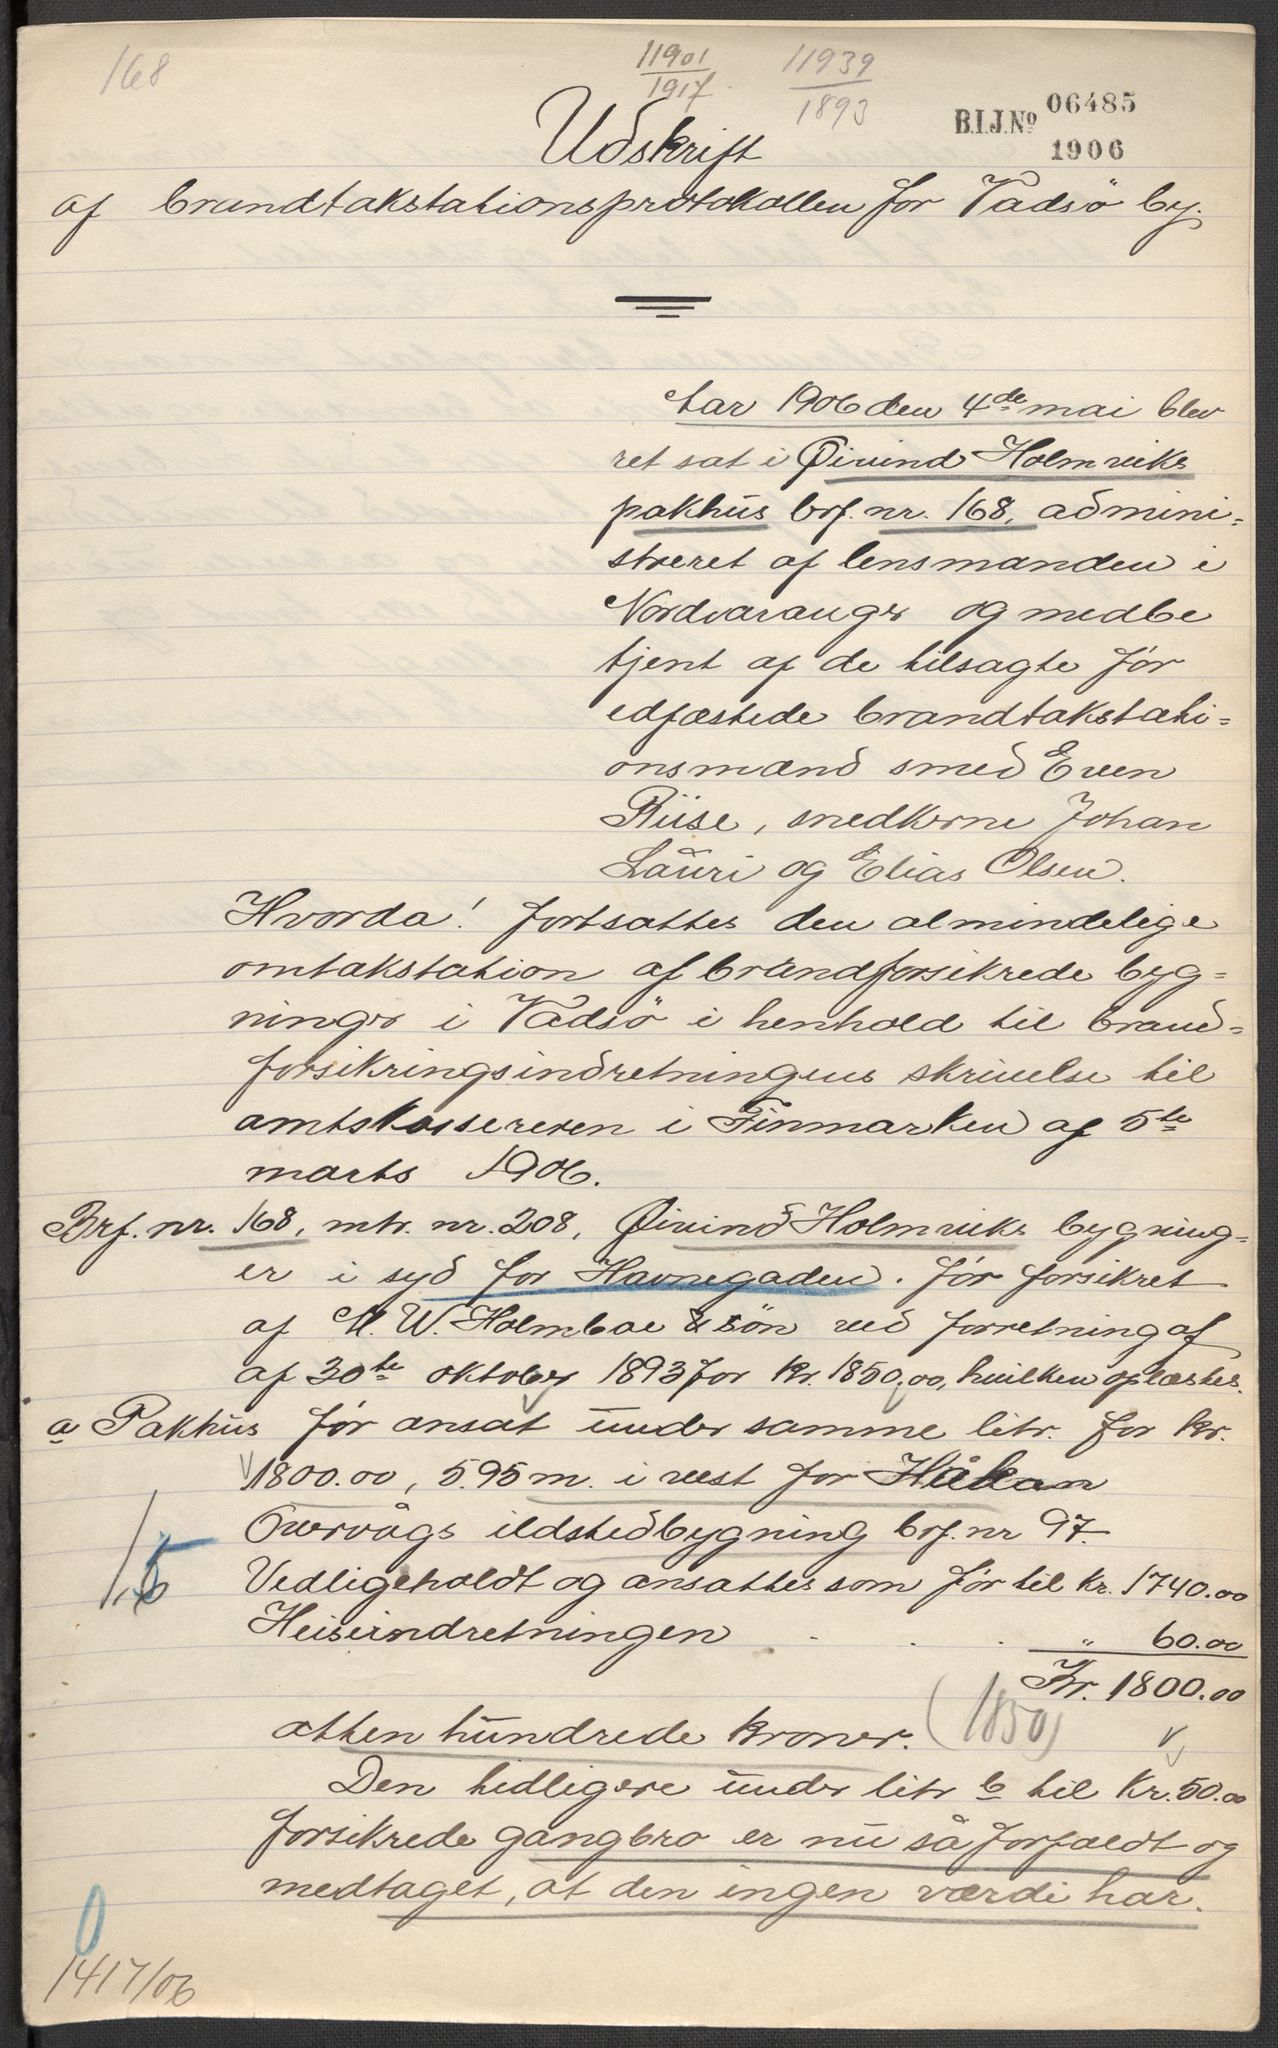 168
11901
1917
11939
1893
B.I.J.No 06485
1906
Udskrift
af brandtakstationsprotokollen for Vadsö by.
Aar 1906 den 4de mai blev
ret sat i Øivind Holmviks
pakhus brf. nr. 168, admini=
streret af lensmanden i
Nordvaranger og medbe
tjent af de tilsagte før
edfæstede brandtakstati=
onsmænd smed Even
Riise, snedkerne Johan
Lauri og Elias Olsen.
Hvorda! fortsattes den almindelige
omtakstation af brandforsikrede byg=
ninger i Vadsö i henhold til brand=
forsikringsindretningens skrivelse til
amtskassereren i Finmarken af 5te
marts 1906.
Brf. nr. 168, mtr. nr. 208, Øivind Holmviks bygning=
er i syd for Havnegaden. før forsikret
af M. W. Holmboe & søn ved forretning af
af 30te oktober 1893 for kr. 1850,00, hvilken oplæstes.
a Pakhus før ansat under samme litr. for kr.
1800.00, 5.95 m. i vest for Håkan
Overvågs ildstedbygning brf. nr 97.
Vedligeholdt og ansattes som før til kr. 1740.00
Heiseindretningen . . . " 60.00
Kr. 1800.00
atten hundrede kroner. (1850)
Den tidligere under litr b til Kr. 50.00
forsikrede gangbro er nu så forfaldt og
medtaget, at den ingen værdi har.
0
1417/06